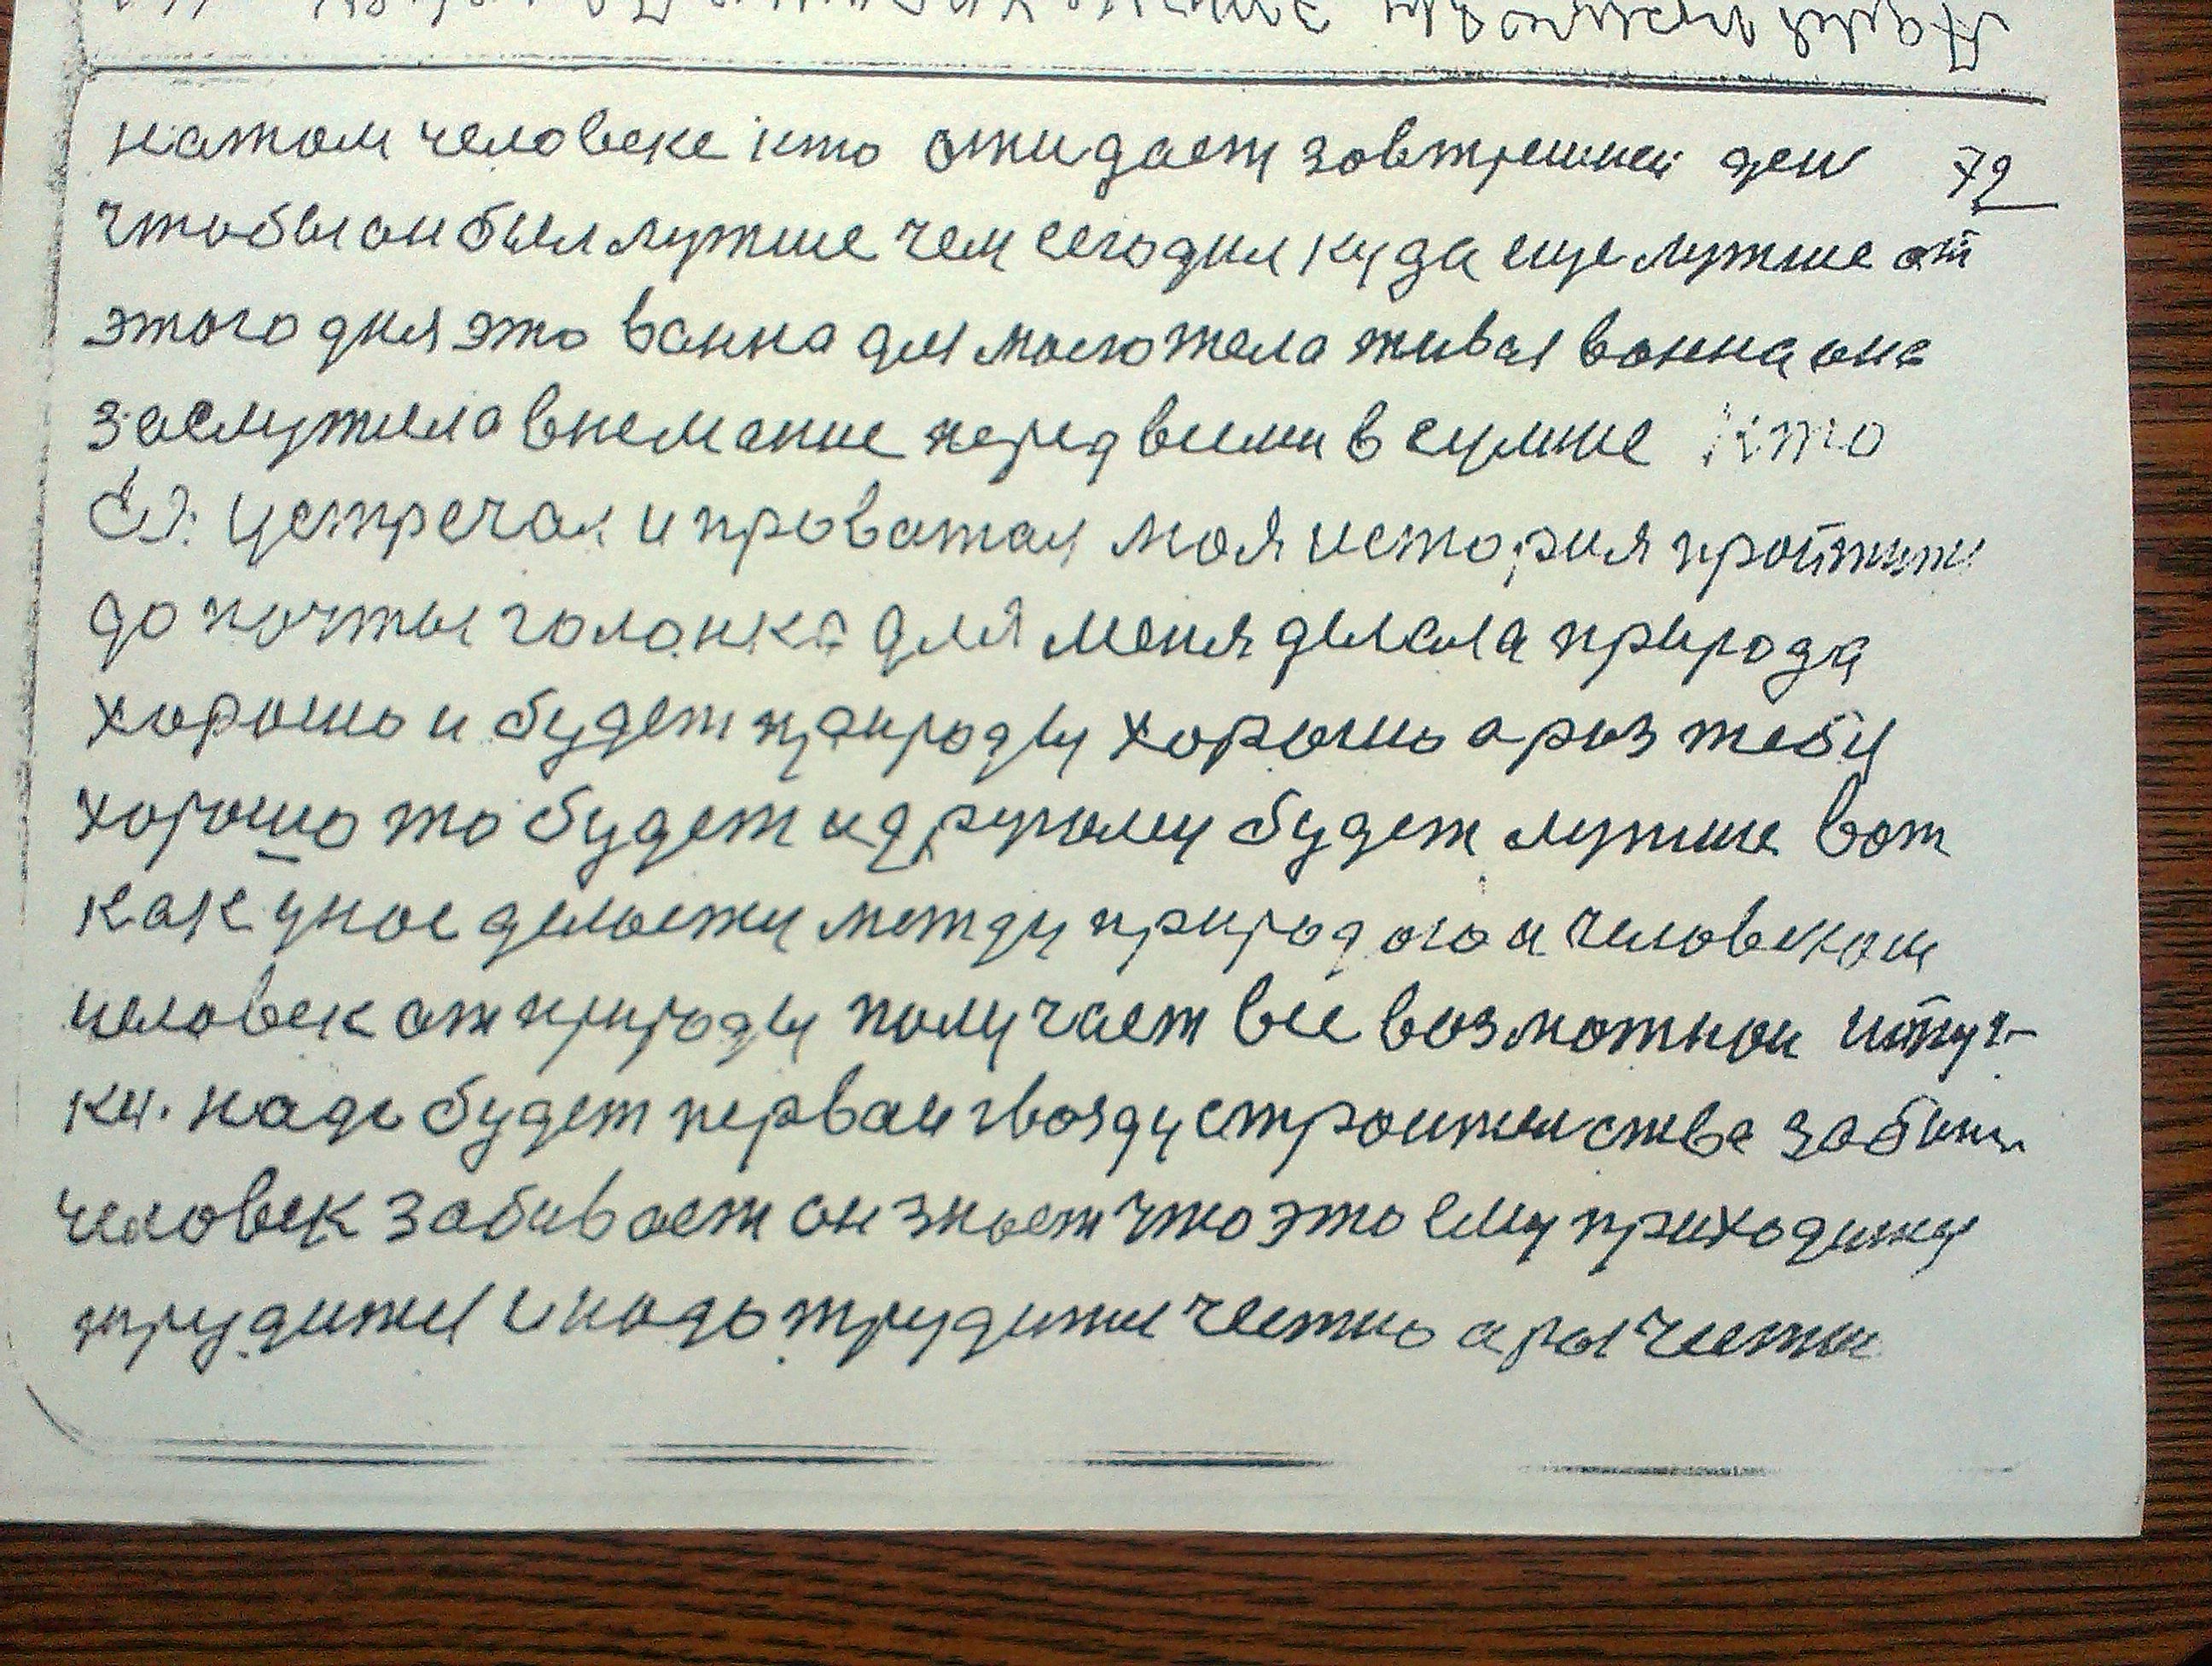 натом человеке кто ожидает завтришней ден 72
чтобы он был лутше чем сегодня куда еще лутше от
этого дня это ванна для моего тела живая ванна она
заслужила внемание перед всеми в сумме кто
устречал и проважал моя история пройтити
до почты галанка для меня делала природа
хорошо и будет природы хорошо араз тебы
хорошо то будет идругому будет лутше вот
как унас делаетсы между природою и человеком
человек от природы получает все возможнои штуч-
ки. надо будет перваи гвозды строителства забити
человек забивает он знает что это ему приходитсы
трудитсы инадо трудитсы честно араз честно